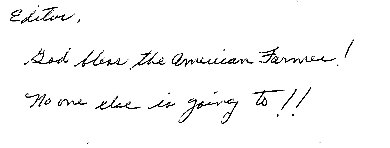 Editor,
God bless the American Farmer!
No one else is going to!!